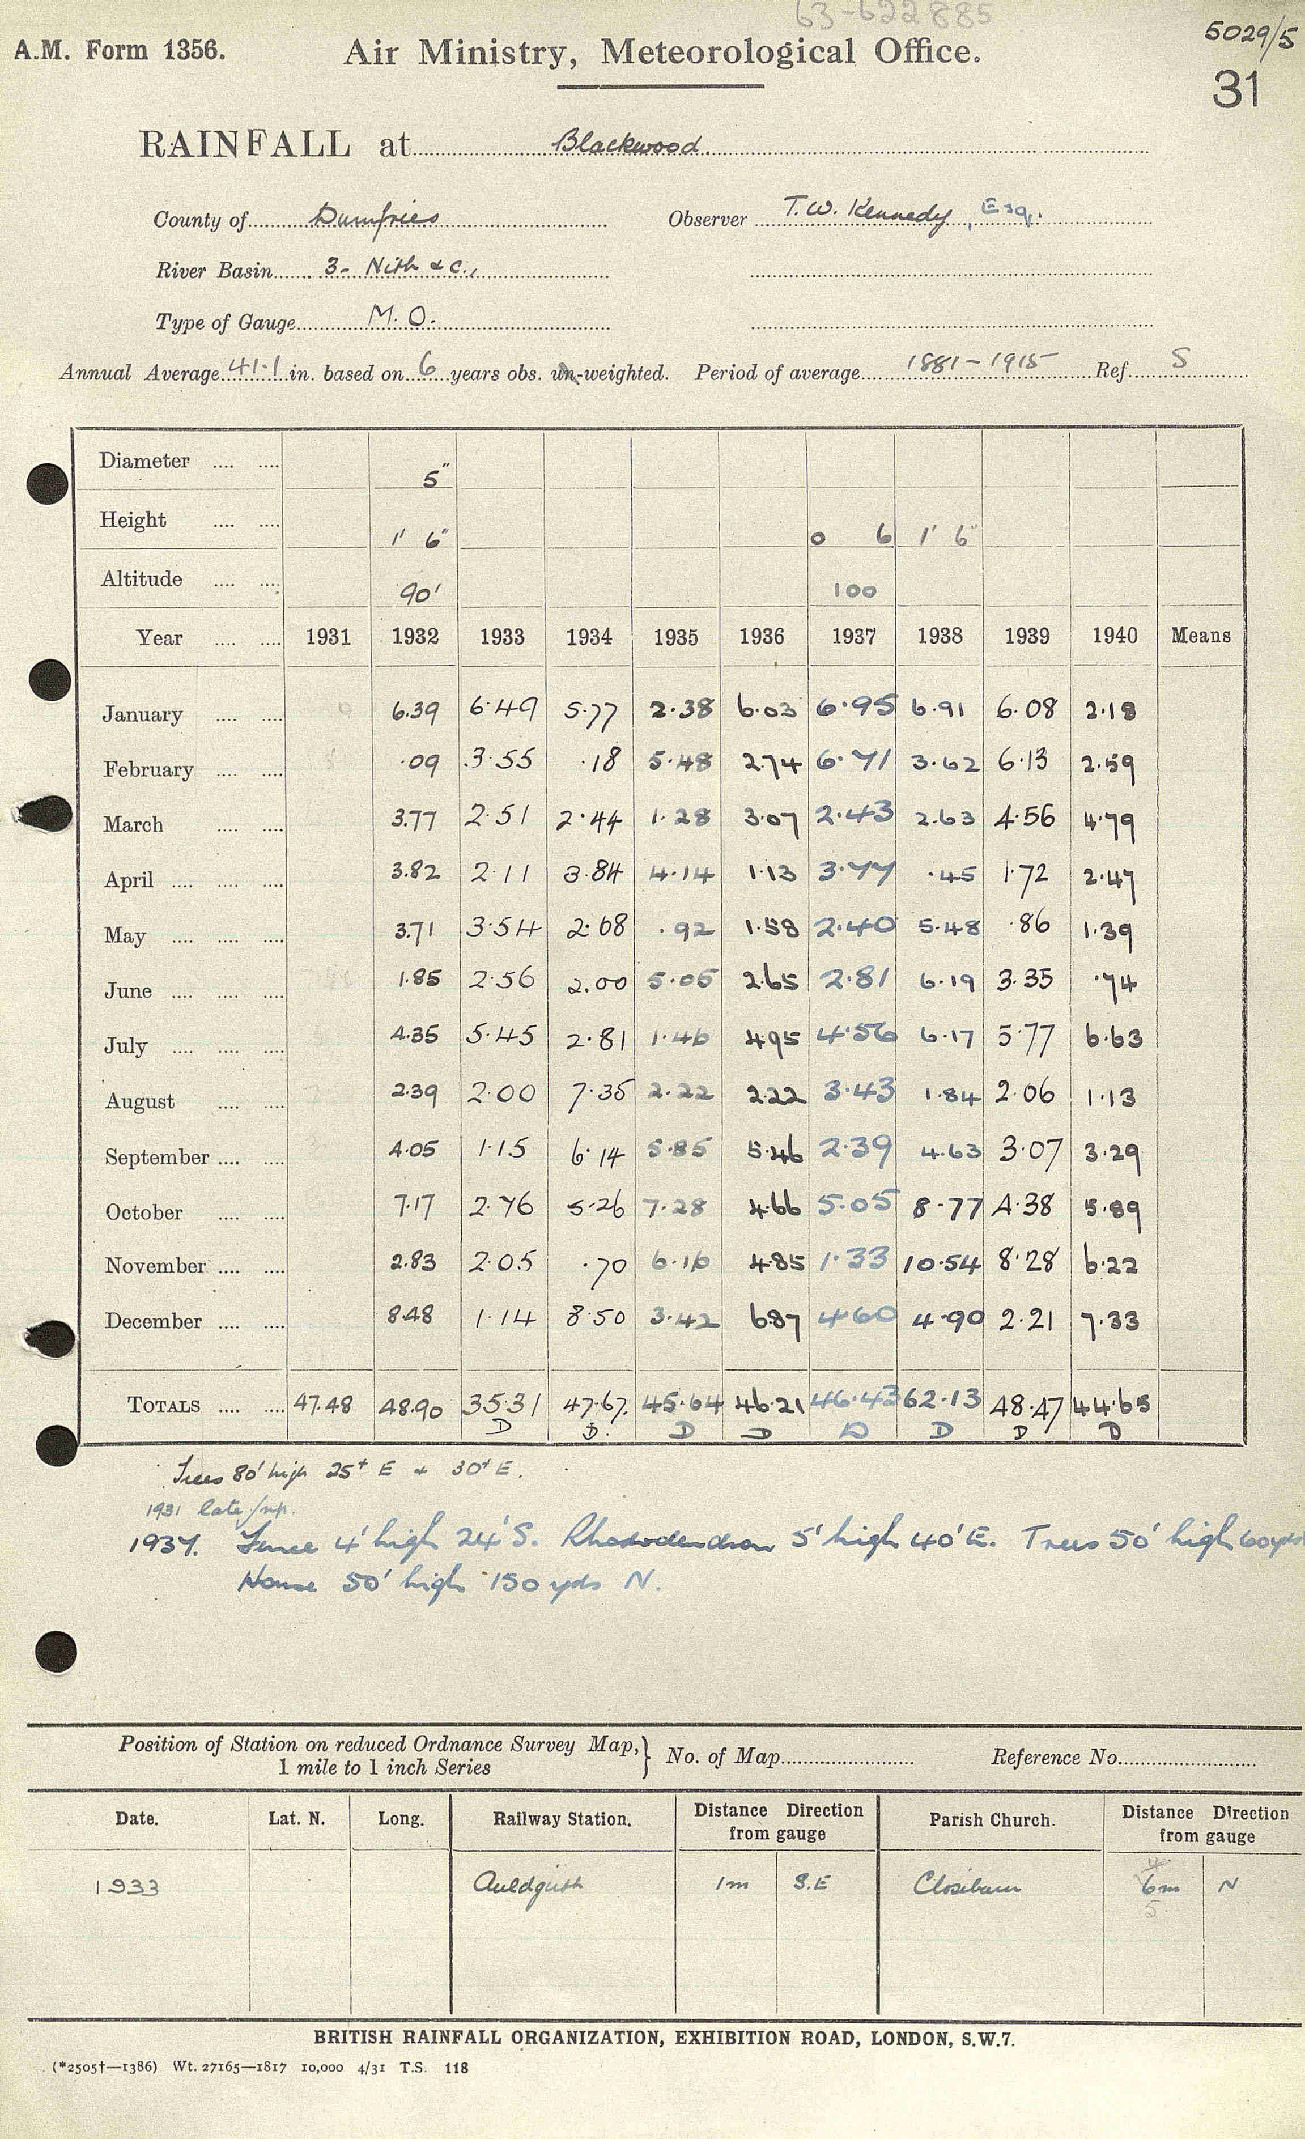 63-622885
A.M. Form 1356. Air Ministry, Meteorological Office. 5029/5
31
RAINFALL at Blackwood
County of Dumfries Observer T.W. Kennedy, Esq.
River Basin 3- Nith & c.,
Type of Gauge M.O.
Annual Average 41.1 in. based on 6 years obs. un-weighted. Period of average 1881-1915 Ref. S
Diameter 5"
Height 1' 6" 0 6 1' 6"
Altitude 90' 100
Year 1931 1932 1933 1934 1935 1936 1937 1938 1939 1940 Means
January 6.39 6.49 5.77 2.38 6.03 6.95 6.91 6.08 2.18
February .09 3.55 .18 5.48 2.74 6.71 3.62 6.13 2.59
March 3.77 2.51 2.44 1.28 3.07 2.43 2.63 4.56 4.79
April 3.82 2.11 3.84 4.14 1.13 3.77 .45 1.72 2.47
May 3.71 3.54 2.68 .92 1.58 2.40 5.48 .86 1.39
June 1.85 2.56 2.00 5.05 2.65 2.81 6.19 3.35 .74
July 4.35 5.45 2.81 1.46 4.95 4.56 6.17 5.77 6.63
August 2.39 2.00 7.35 2.22 2.22 3.43 1.84 2.06 1.13
September 4.05 1.15 6.14 5.85 5.46 2.39 4.63 3.07 3.29
October 7.17 2.76 5.26 7.28 4.66 5.05 8.77 4.38 5.89
November 2.83 2.05 .70 6.16 4.85 1.33 10.54 8.28 6.22
December 8.48 1.14 8.50 3.42 6.87 4.60 4.90 2.21 7.33
TOTALS 47.48 48.90 35.31 47.67 45.64 46.21 46.43 62.13 48.47 44.65
D D D D D D D D
Trees 80' high 25+ E + 30+ E.
1931 late
1937. Fence 4' high 24' S. Rhododendron 5' high 40' E. Trees 50' high 60yds
House 50' high 150 yds N.
Position of Station on reduced Ordnance Survey Map, 1 mile to 1 inch Series } No. of Map Reference No.
Date. Lat. N. Long. Railway Station. Distance Direction from gauge Parish Church. Distance Direction from gauge
4
1933 Auldgirth 1m S.E Closeburn 6m N
5
BRITISH RAINFALL ORGANIZATION, EXHIBITION ROAD, LONDON, S.W.7.
(*2505†—1386) Wt. 27165—1817 10,000 4/31 T.S. 118